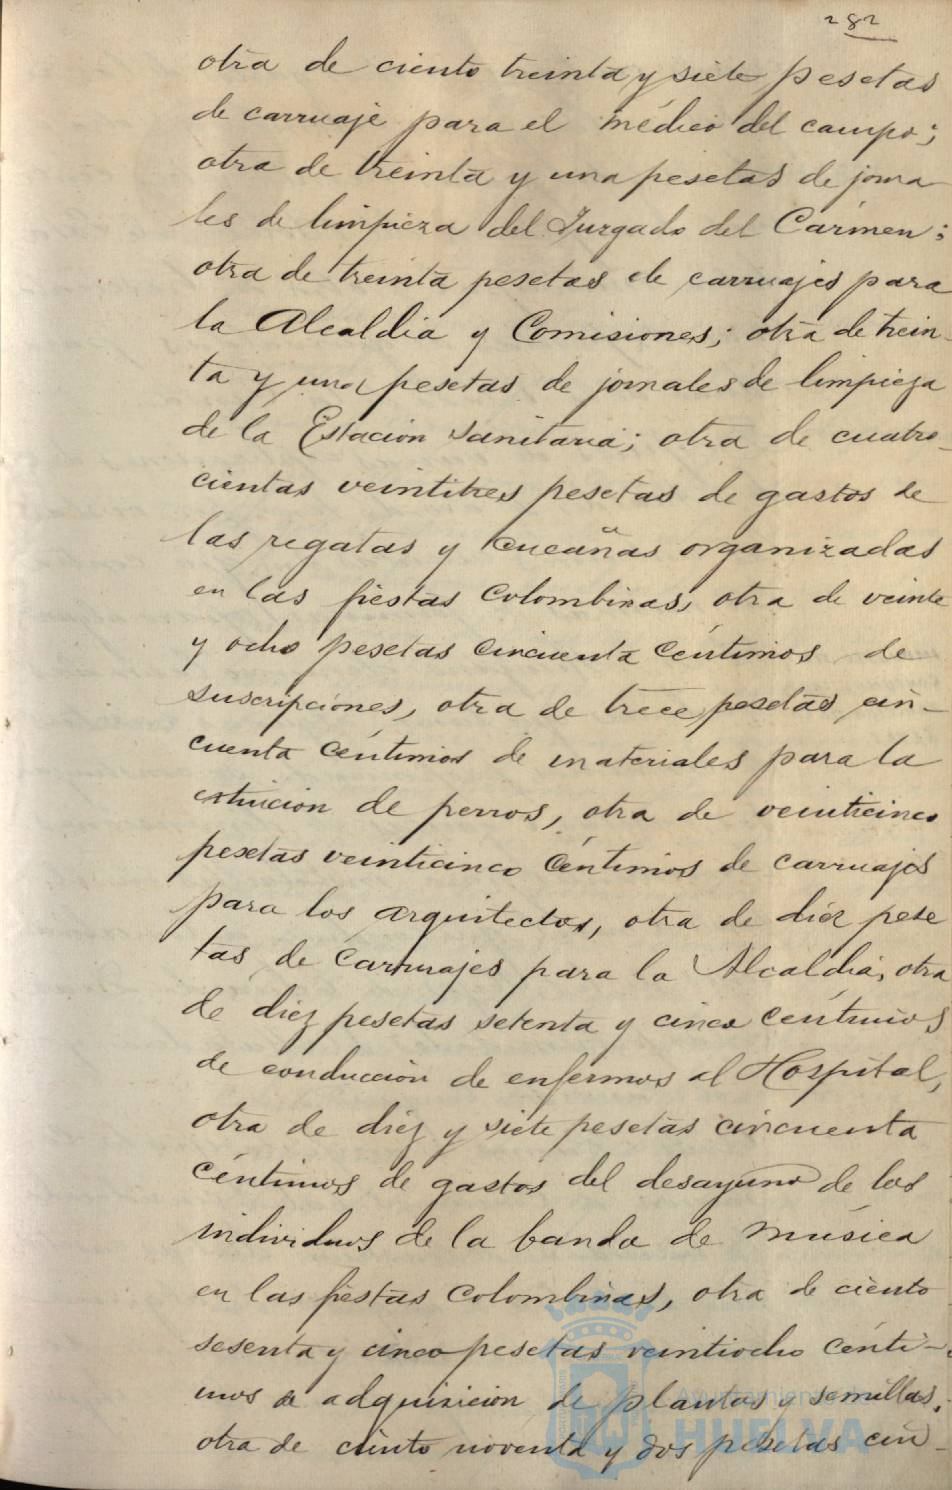 282
otra de ciento treinta y siete pesetas
de carruaje para el médico del campo;
otra de treinta y una pesetas de jorna-
les de limpieza del Juzgado del Cármen;
otra de treinta pesetas de carruajes para
la Alcaldia y Comisiones; otra de trein-
ta y una pesetas de jornales de limpieza
de la Estacion sanitaria; otra de cuatro-
cientas veintitres pesetas de gastos de
las regatas y cucañas organizadas
en las fiestas Colombinas, otra de veinte
y ocho pesetas cincuenta céntimos de
suscripciones, otra de trece pesetas cin-
cuenta céntimos de materiales para la
estincion de perros, otra de veinticinco
pesetas veinticinco céntimos de carruajes
para los arquitectos, otra de diez pese
tas de carruajes para la Alcaldia, otra
de diez pesetas setenta y cinco céntimos
de conducción de enfermos al Hospital,
otra de diez y siete pesetas cincuenta
céntimos de gastos del desayuno de los
individuos de la banda de música
en las fiestas Colombinas, otra de ciento
sesenta y cinco pesetas veintiocho cénti-
mos de adquisicion de plantas y semillas,
otra de ciento noventa y dos pesetas cin-
Ayuntamiento de
HUELVA